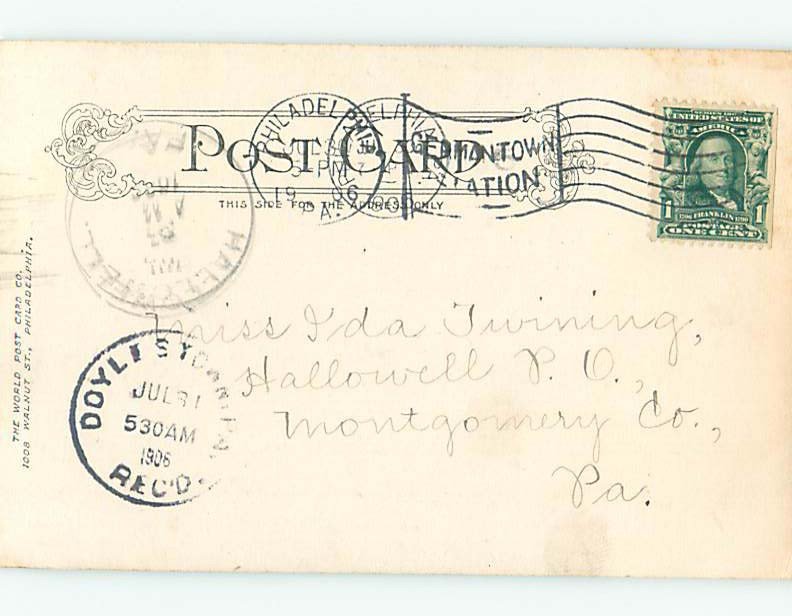 POST CARD
THIS SIDE FOR THE ADDRESS ONLY
PHILADELPHIA
PM
1906
PA.
GERMANTOWN
STATION
SERIES 1902
UNITED STATES OF
AMERICA
1 1790 FRANKLIN 1790 1
POSTAGE
ONE CENT
HALLOWELL
THE WORLD POST CARD CO.
1008 WALNUT ST., PHILADELPHIA.
Miss Ida Twining,
Hallowell P. O.,
Montgomery Co.,
Pa.
DOYLESTOWN, PA.
JUL 31
5 30 AM
1906
REC'D.